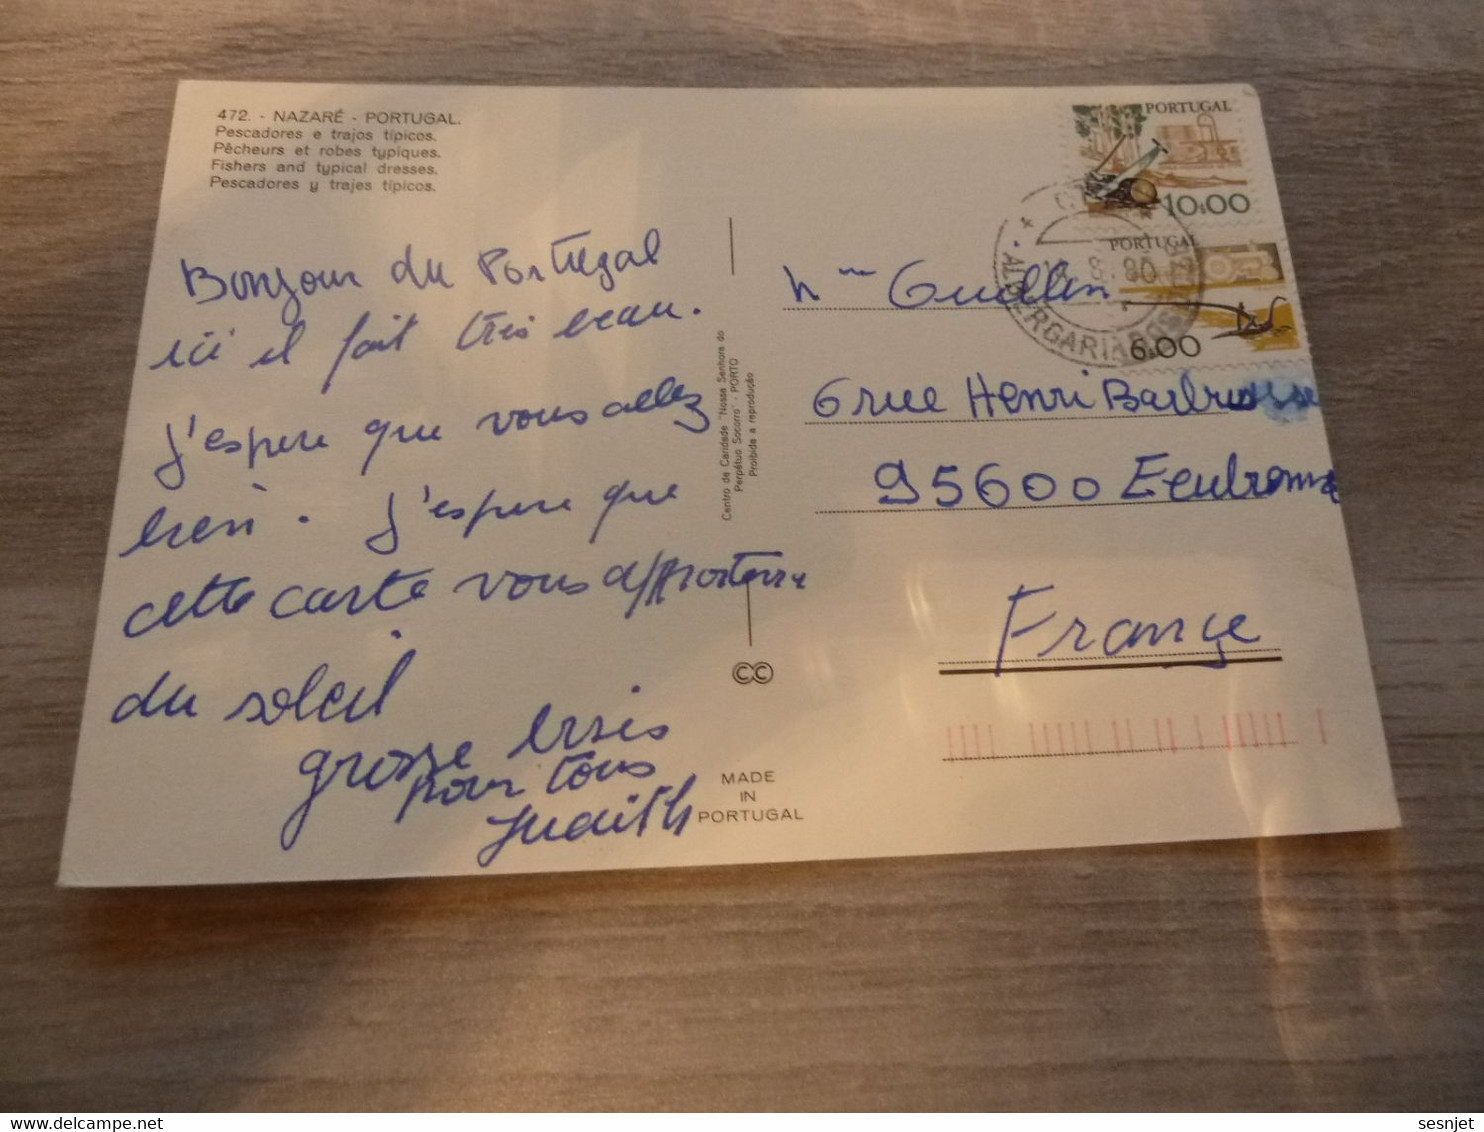 472. - NAZARÉ - PORTUGAL.
Pescadores e trajos típicos.
Pêcheurs et robes typiques.
Fishers and typical dresses.
Pescadores y trajes típicos.
Bonjour du Portugal
ici il fait très beau.
J'espere que vous allez
bien. J'espere que
cette carte vous apportera
du soleil
grosse bises
pour tous
Judith
Centro de Caridade "Nossa Senhora do
Perpétuo Socorro" - PORTO
Proibida a reprodução
CC
MADE
IN
PORTUGAL
PORTUGAL
10.00
PORTUGAL
6.00
8.80
Mme
6 rue Henri Barbusse
95600
France
sesnjet